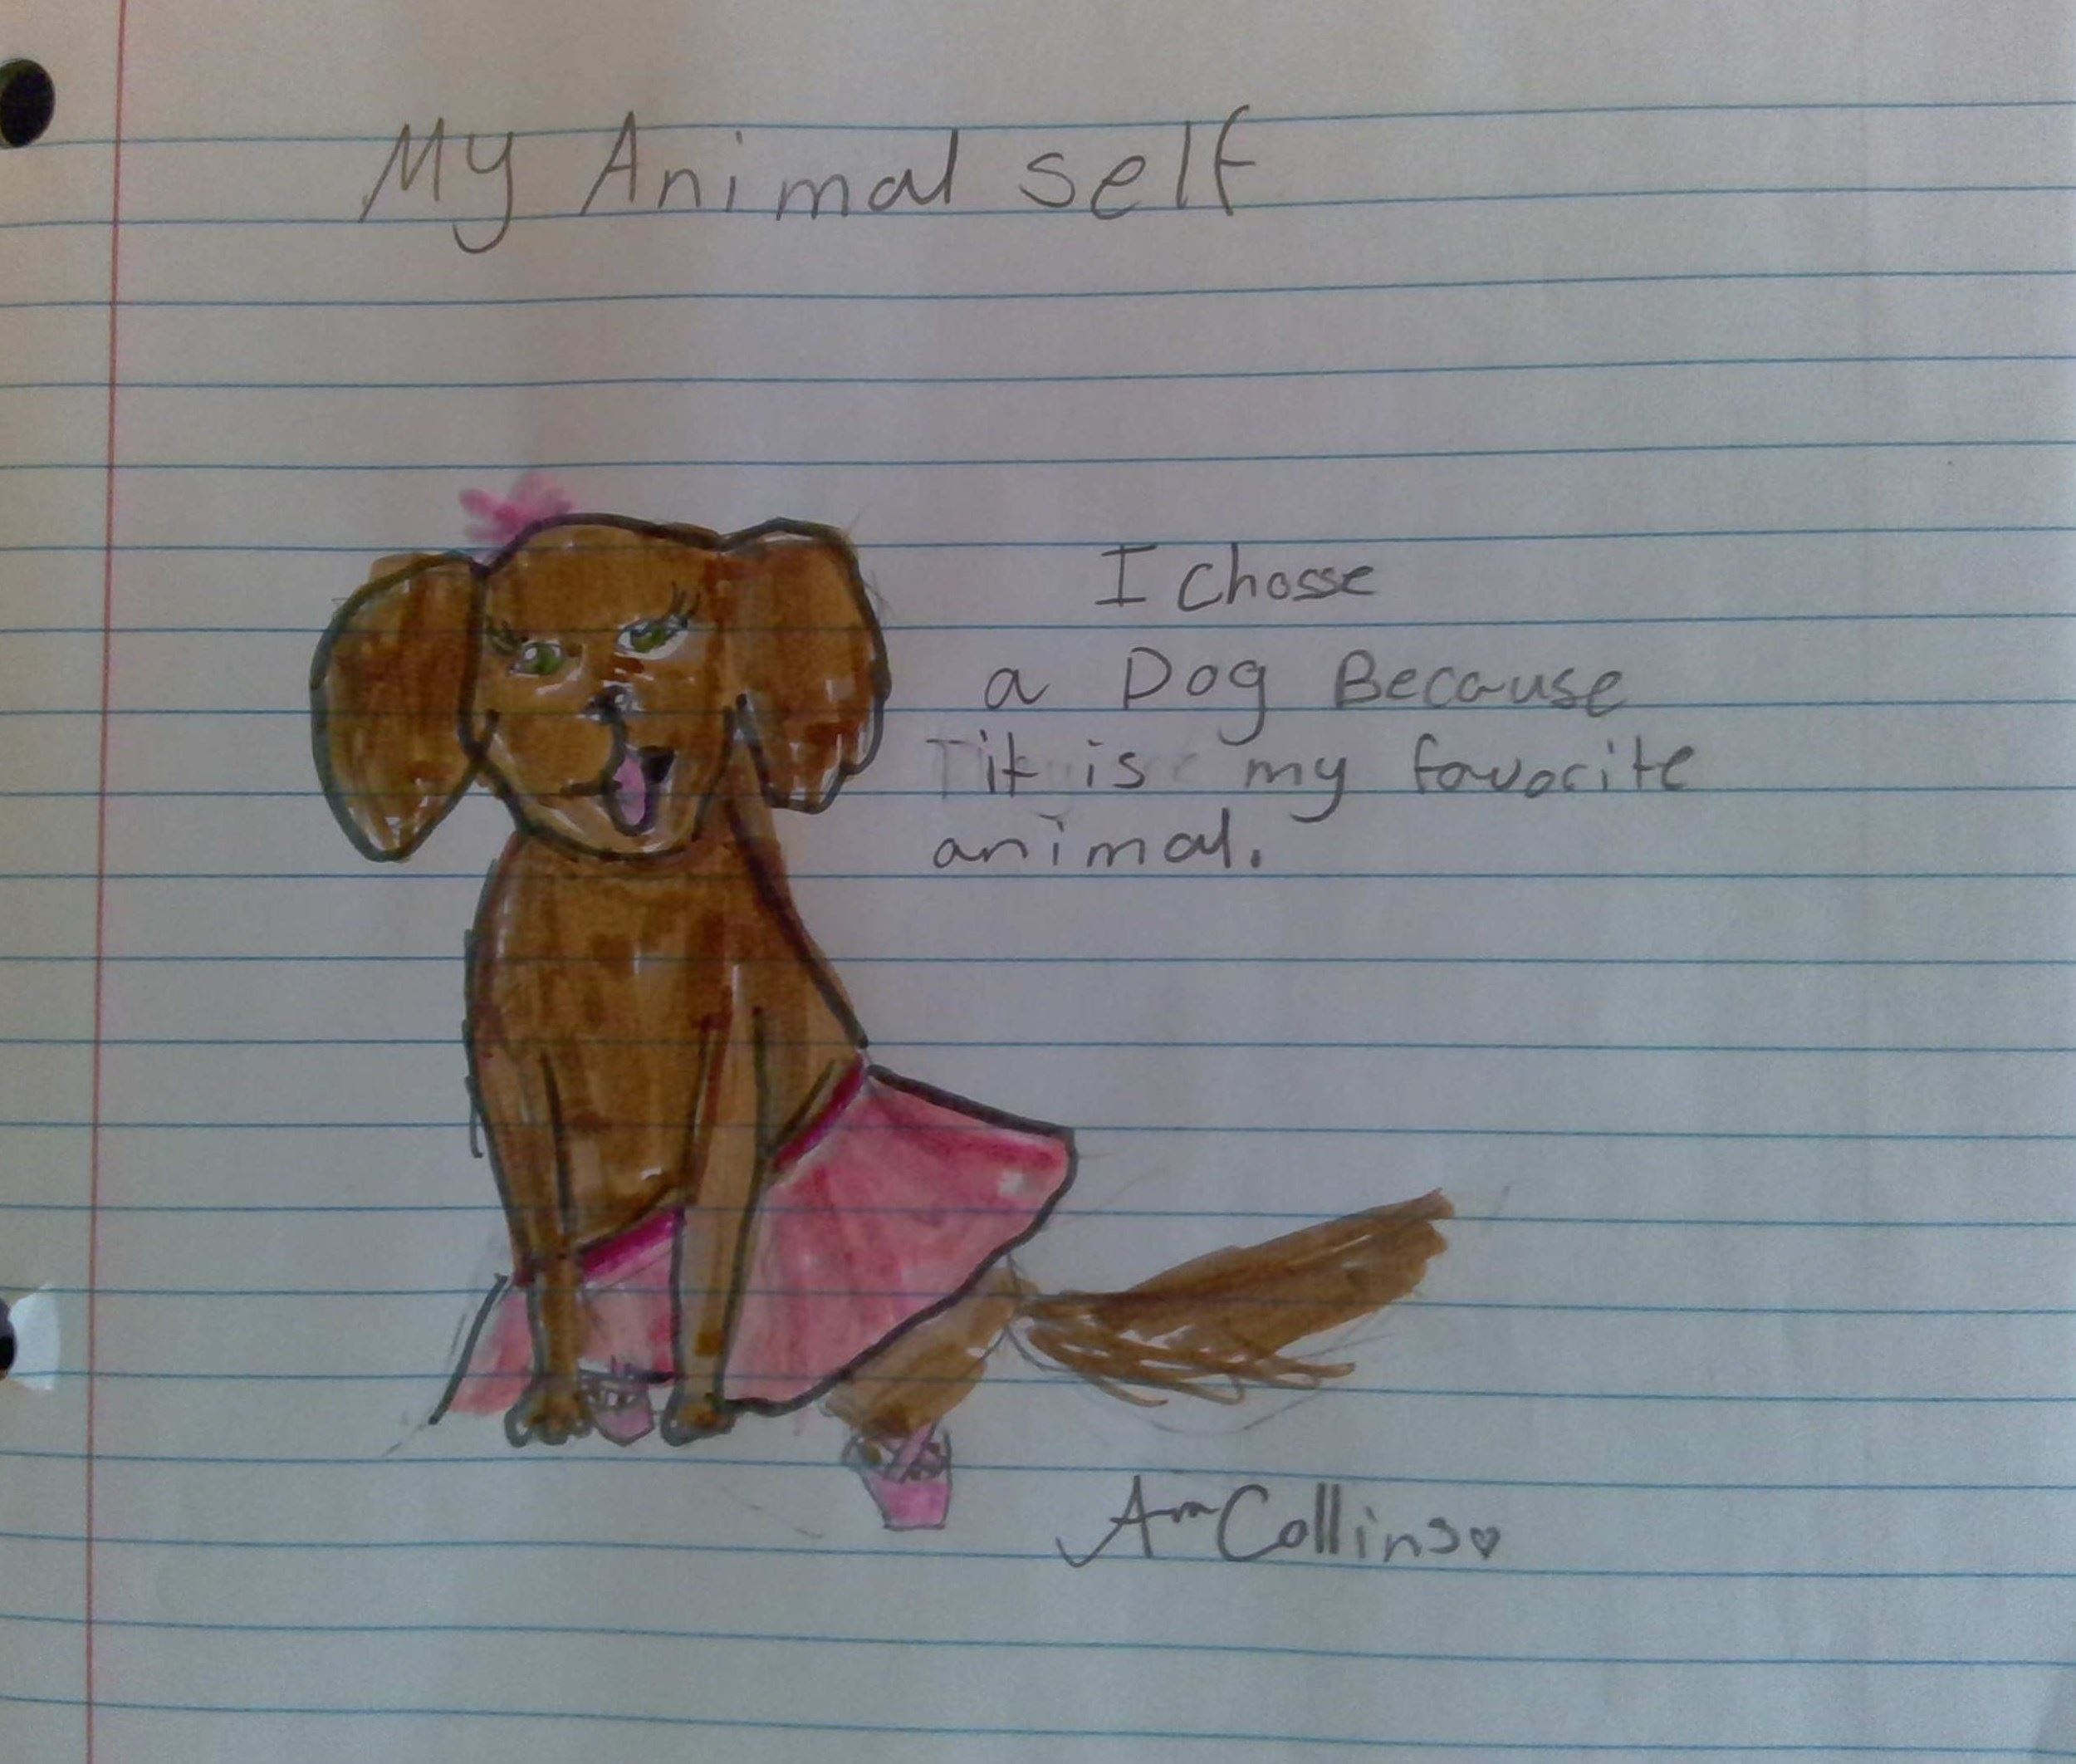 My Animal self
I Chosse
a Dog Because
it is my favorite
animal.
Am Collins